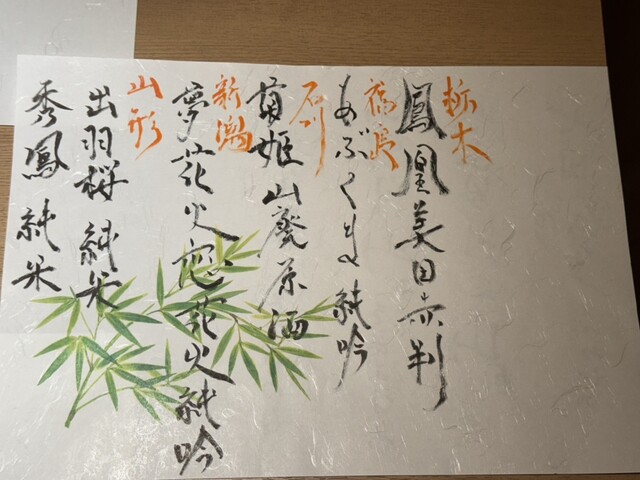 栃木
鳳凰美田赤判
福島
あぶくま 純吟
石川
菊姫 山廃原酒
新潟
山形
出羽桜 純米
秀鳳 純米